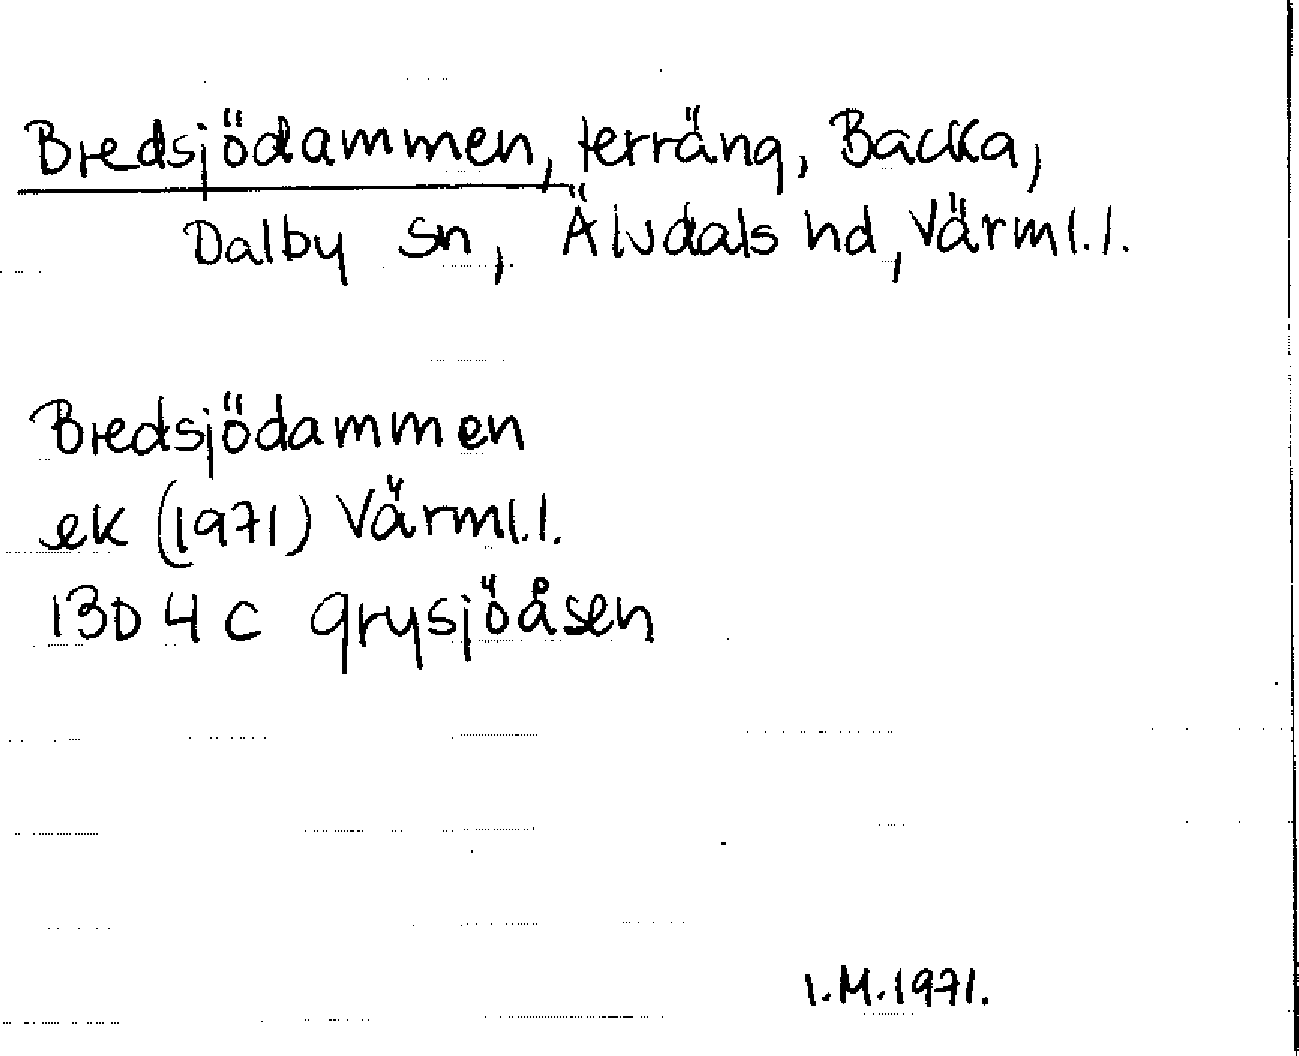 Bredsjödammen, terräng, Backa,
Dalby sn, Älvdals hd, Värml.l.
Bredsjödammen
ek (1971) Värml.l.
13D 4 c Grysjöåsen
I.M.1971.